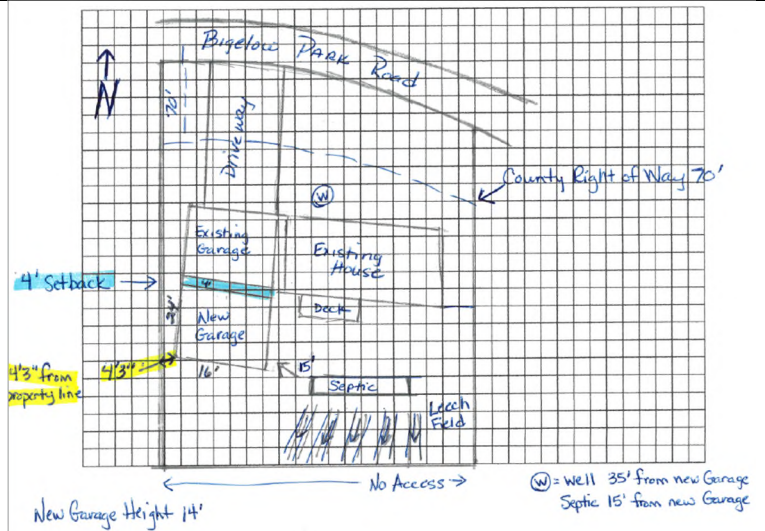 Bigelow PARK Road
N
70'
Driveway
County Right of Way 70'
W
Existing
Garage
Existing
House
4' Setback
4'
Deck
24'
New
Garage
4'3" from
property line
4'3"
16'
15'
Septic
Leech
Field
No Access
W = Well 35' from new Garage
Septic 15' from new Garage
New Garage Height 14'